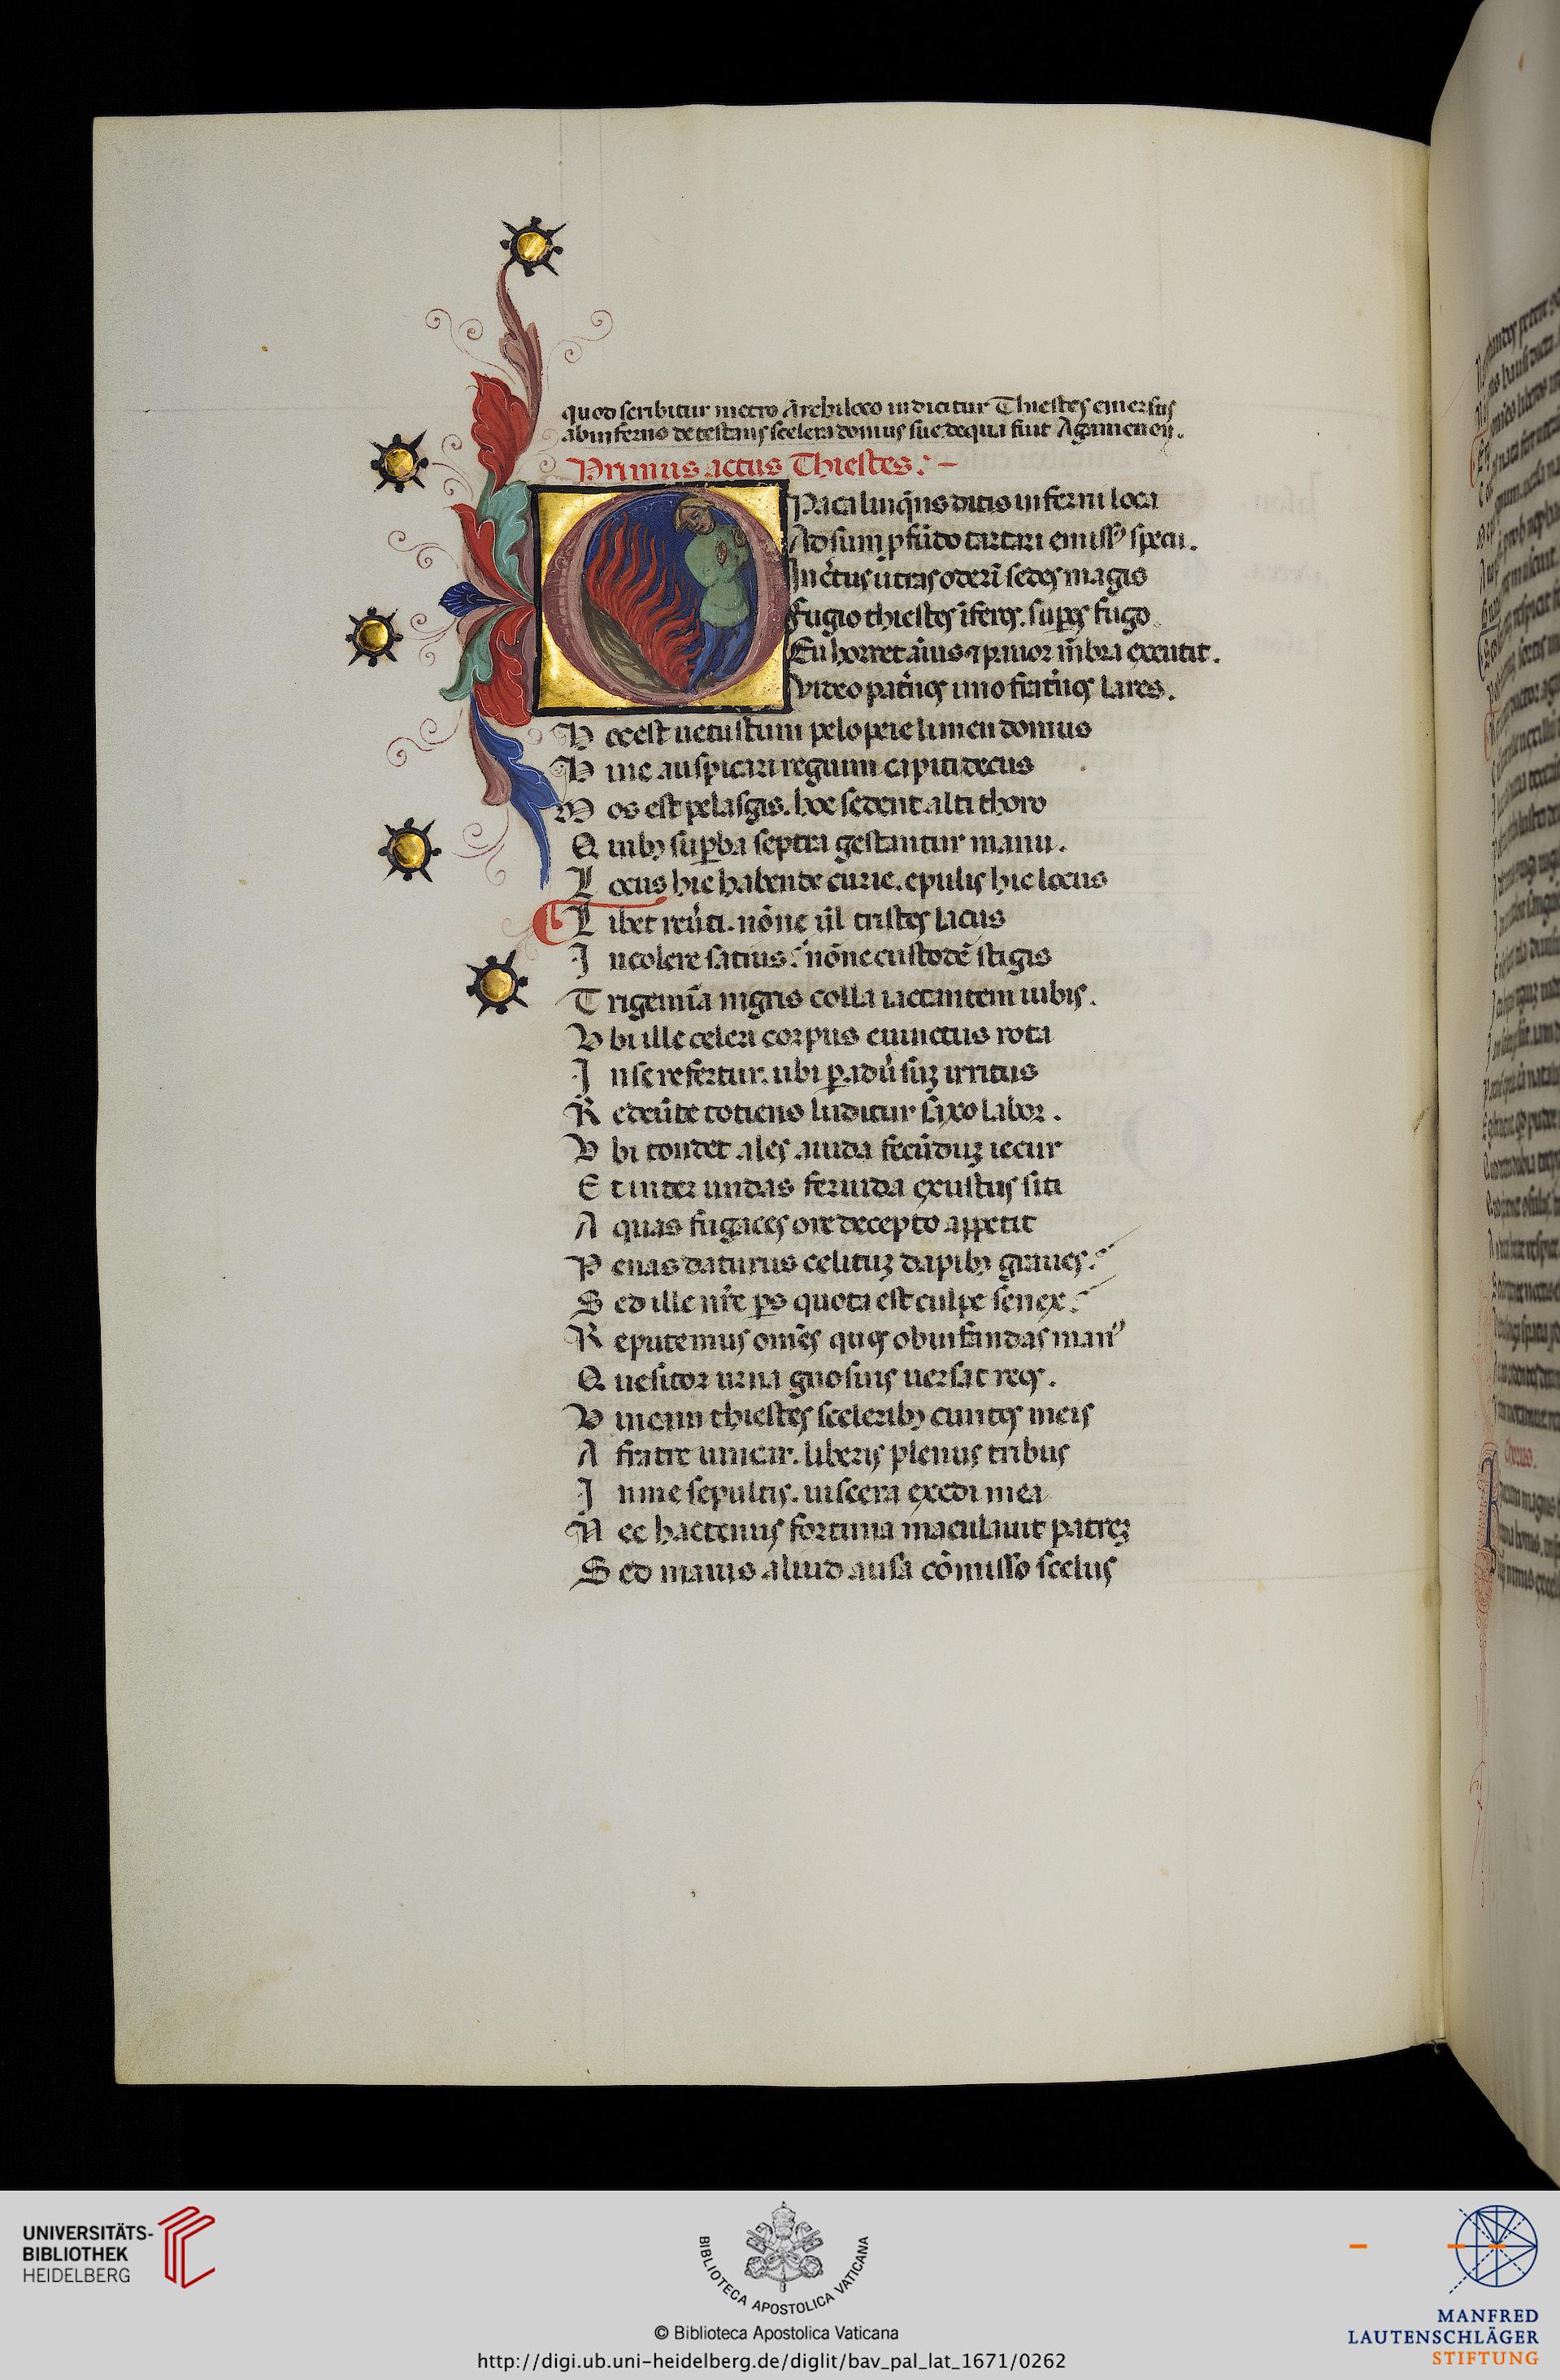 quod scribitur metro Archiloco indicitur Thiestes emersus
ab inferno detestans scelera domus sue de qua fuit Agamenon.
Primus actus Thiestes:-
Opaca linq̄ns ditis inferni loca
Adsum ꝓfūdo tartari emissꝰ specu.
Incertus utras oderī sedes magis
Fugio thiestes īferos. suꝑos fugo
En horret aīus ⁊ pauor mēbra excutit.
Video patrios imo fratrios lares.
Hoc est uetustum pelopeie limen domus
Hinc auspicari regium capiti decus
Mos est pelasgis. hoc sedent alti thoro
Quibꝫ suꝑba septra gestantur manu.
Locus hic habende curie. epulis hic locus
Libet reūti. nōne uł tristes lacus
Incolere satius: nōne custodē stigis
Trigemīa nigris colla iactantem iubis.
Vbi ille celeri corpus euinctus rota
In se refertur. ubi ꝑ adū̓suꝫ irritus
Redeūte totiens luditur saxo labor.
Vbi tondet ales auida fecūduꝫ iecur
Et inter undas feruida exustus siti
Aquas fugaces ore decepto appetit
Penas daturus celituꝫ dapibꝫ graues.
Sed ille nr̄e ꝑs quota est culpe senex:
Reputemus omēs quos ob infandas manꝰ
Quesitor urna gnosius uersat reos.
Vincam thiestes sceleribꝫ cunctos meis
A fratre uincar. liberis plenus tribus
In me sepultis. uiscera exedi mea
Nec hactenus fortuna maculauit patreꝫ
Sed maius aliud ausa cōmisso scelus
Chorus.
UNIVERSITÄTS-
BIBLIOTHEK
HEIDELBERG
BIBLIOTECA APOSTOLICA VATICANA
© Biblioteca Apostolica Vaticana
http://digi.ub.uni-heidelberg.de/diglit/bav_pal_lat_1671/0262
MANFRED
LAUTENSCHLÄGER
STIFTUNG